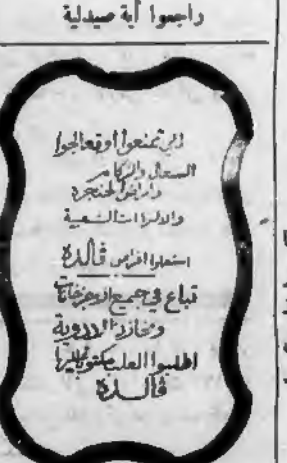 راجعوا أية صيدلية
لكي تمنعوا أو تعالجوا
السعال والزكام
وأمراض الحنجرة
والالتهابات الشعبية
استعملوا اقراص ڤالدة
تباع في جميع الاجزخانات
ومخازن الادوية
اطلبوا العلب مكتوب عليها
ڤالدة